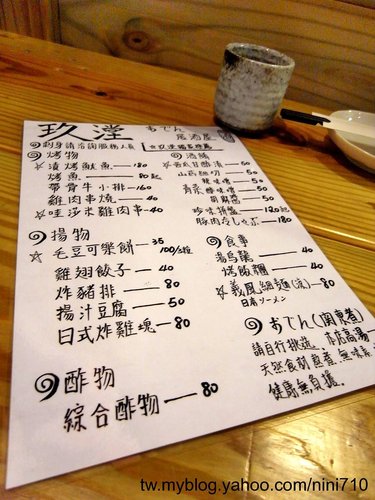 玖瀅 おでん 居酒屋
刺身請洽詢服務人員
烤物
☆漬烤魷魚—180
烤魚—80起
帶骨牛小排—160
雞肉串燒—40
☆哇莎米雞肉串-40
揚物
☆毛豆可樂餅—35
100/3粒
雞翅餃子—40
炸豬排—80
揚汁豆腐—50
日式炸雞塊—80
酢物
綜合酢物—80
酒餚
50
山藥細切—50
辣味噌—50
50
珍味拼盤—120起
豚肉たしゃぶ—130
食事
湯烏龍—40
烤飯糰—40
☆義風細麵(流)—80
日春ソーメン
おでん(關東煮)
請自行挑選。本店高湯
天然食材熬煮,無味素
健康無負擔。
tw.myblog.yahoo.com/nini710